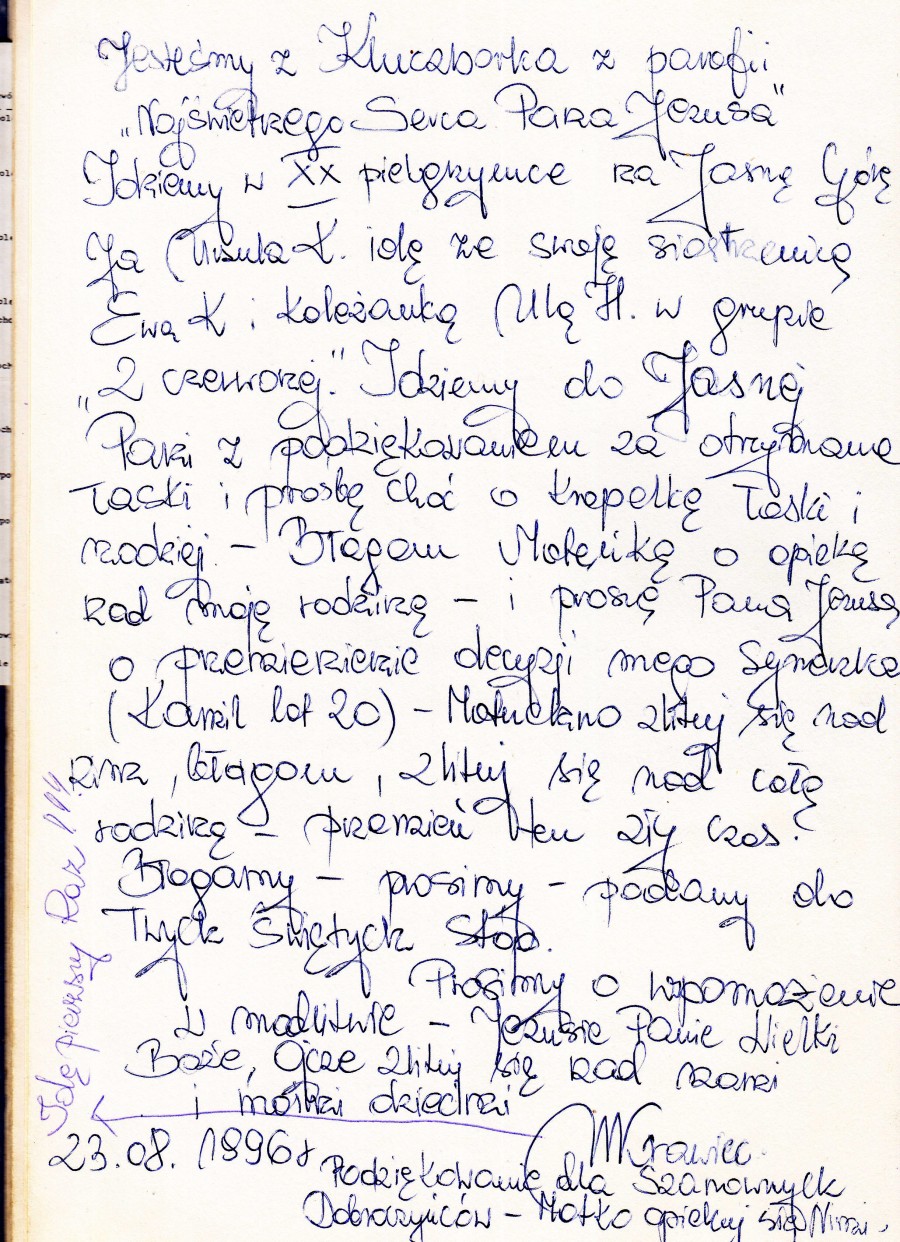 Jesteśmy z Kluczborka z parafii
„Najświetrzego Serca Pana Jezusa"
Idziemy w XX pielgrzymce na Jasną Górę
Ja Urszula K. idę ze swoją siostrzenicą
Ewą K i koleżanką Ulą H. w grupie
„2 czerwonej." Idziemy do Jasnej
Pani z podziękowaniem za otrzymane
łaski i prośbę choć o kropelkę łaski i
nadzieji – Błagam Mateńkę o opiekę
nad moją rodziną – i proszę Pana Jezusa
o przemienienie decyzji mego Syneczka
(Kamil lat 20) – Matuchno zlituj się nad
nim, błagam, zlituj się nad całą
rodziną – przemień ten zły czas.
Błagamy – prosimy – padamy do
Twych Świętych Stóp.
Prosimy o wspomożenie
w modlitwie – Jezusie Panie Wielki
Boże, Ojcze zlituj się nad nami
i moimi dziećmi
Idę pierwszy Raz !!!!
23.08.1996r
Podziękowanie dla Szanownych
Dobroczyńców – Matko opiekuj się Nimi.